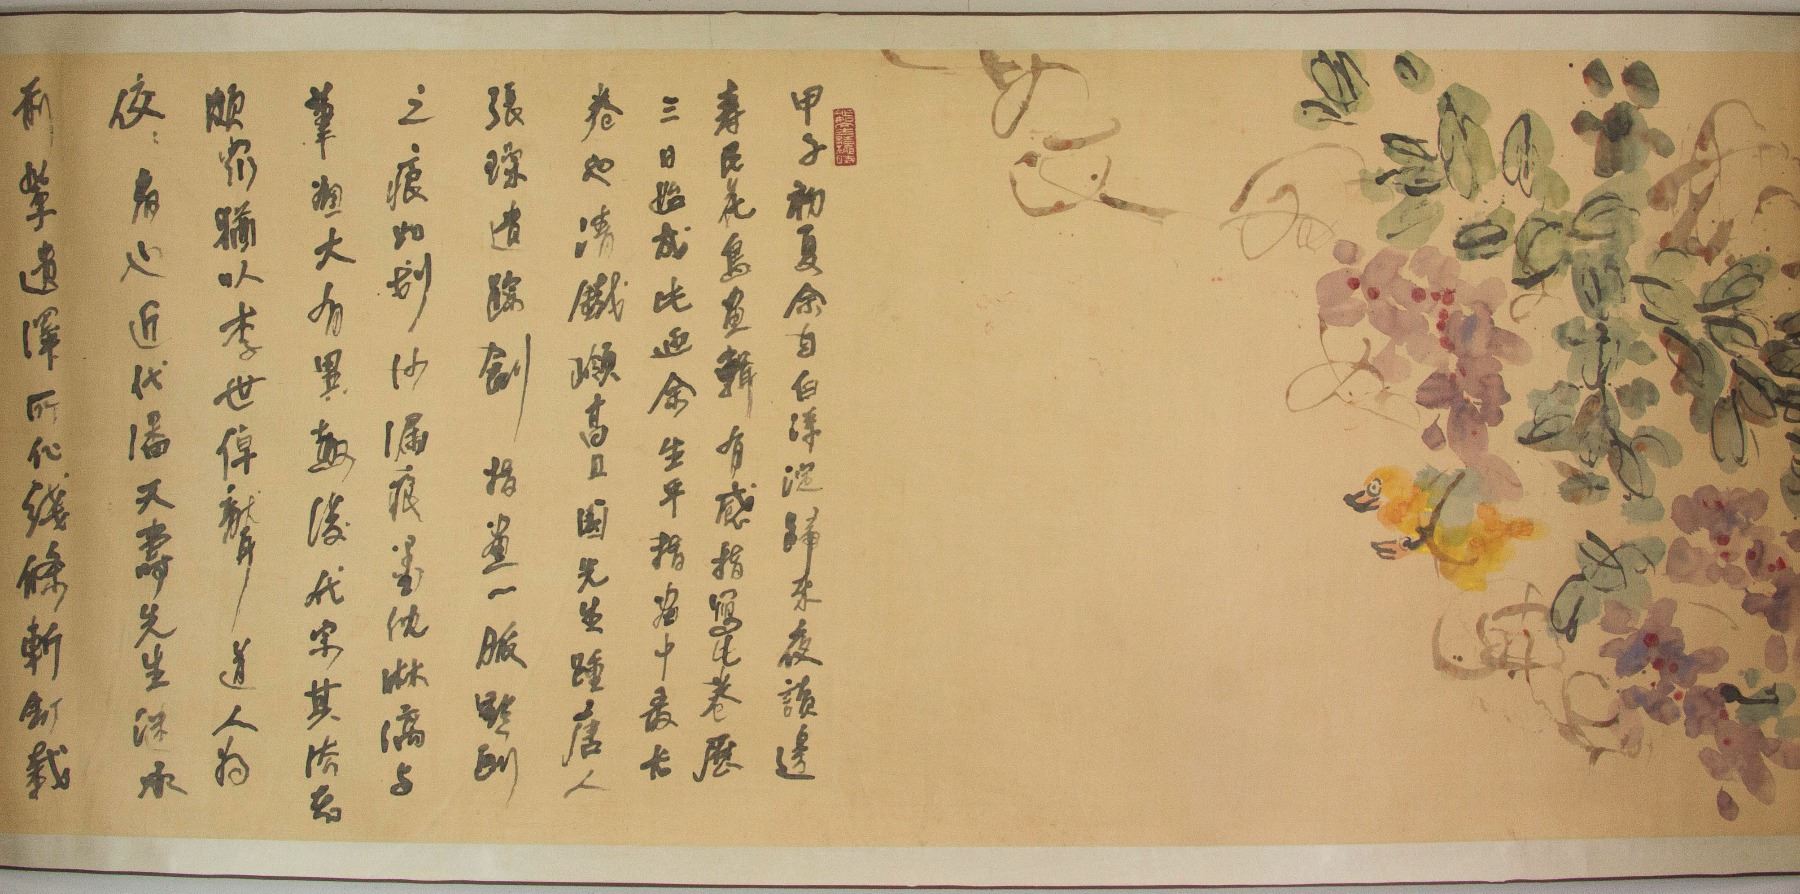 甲子初夏余自白洋淀歸来夜讀邊
壽民花鳥畫輯有感指寫此卷歷
三日始成此迺余生平指畫中最長
卷也清鐵嶺高且園先生踵唐人
張璪遺踪創指畫一脈點劃
之痕如劃沙漏痕墨沈淋漓与
筆趣大有異趣後代宗其法者
頗眾猶以李世倬 道人為
佼〻者也近代潘天壽先生继承
前輩遺澤所作綫條斬釘截